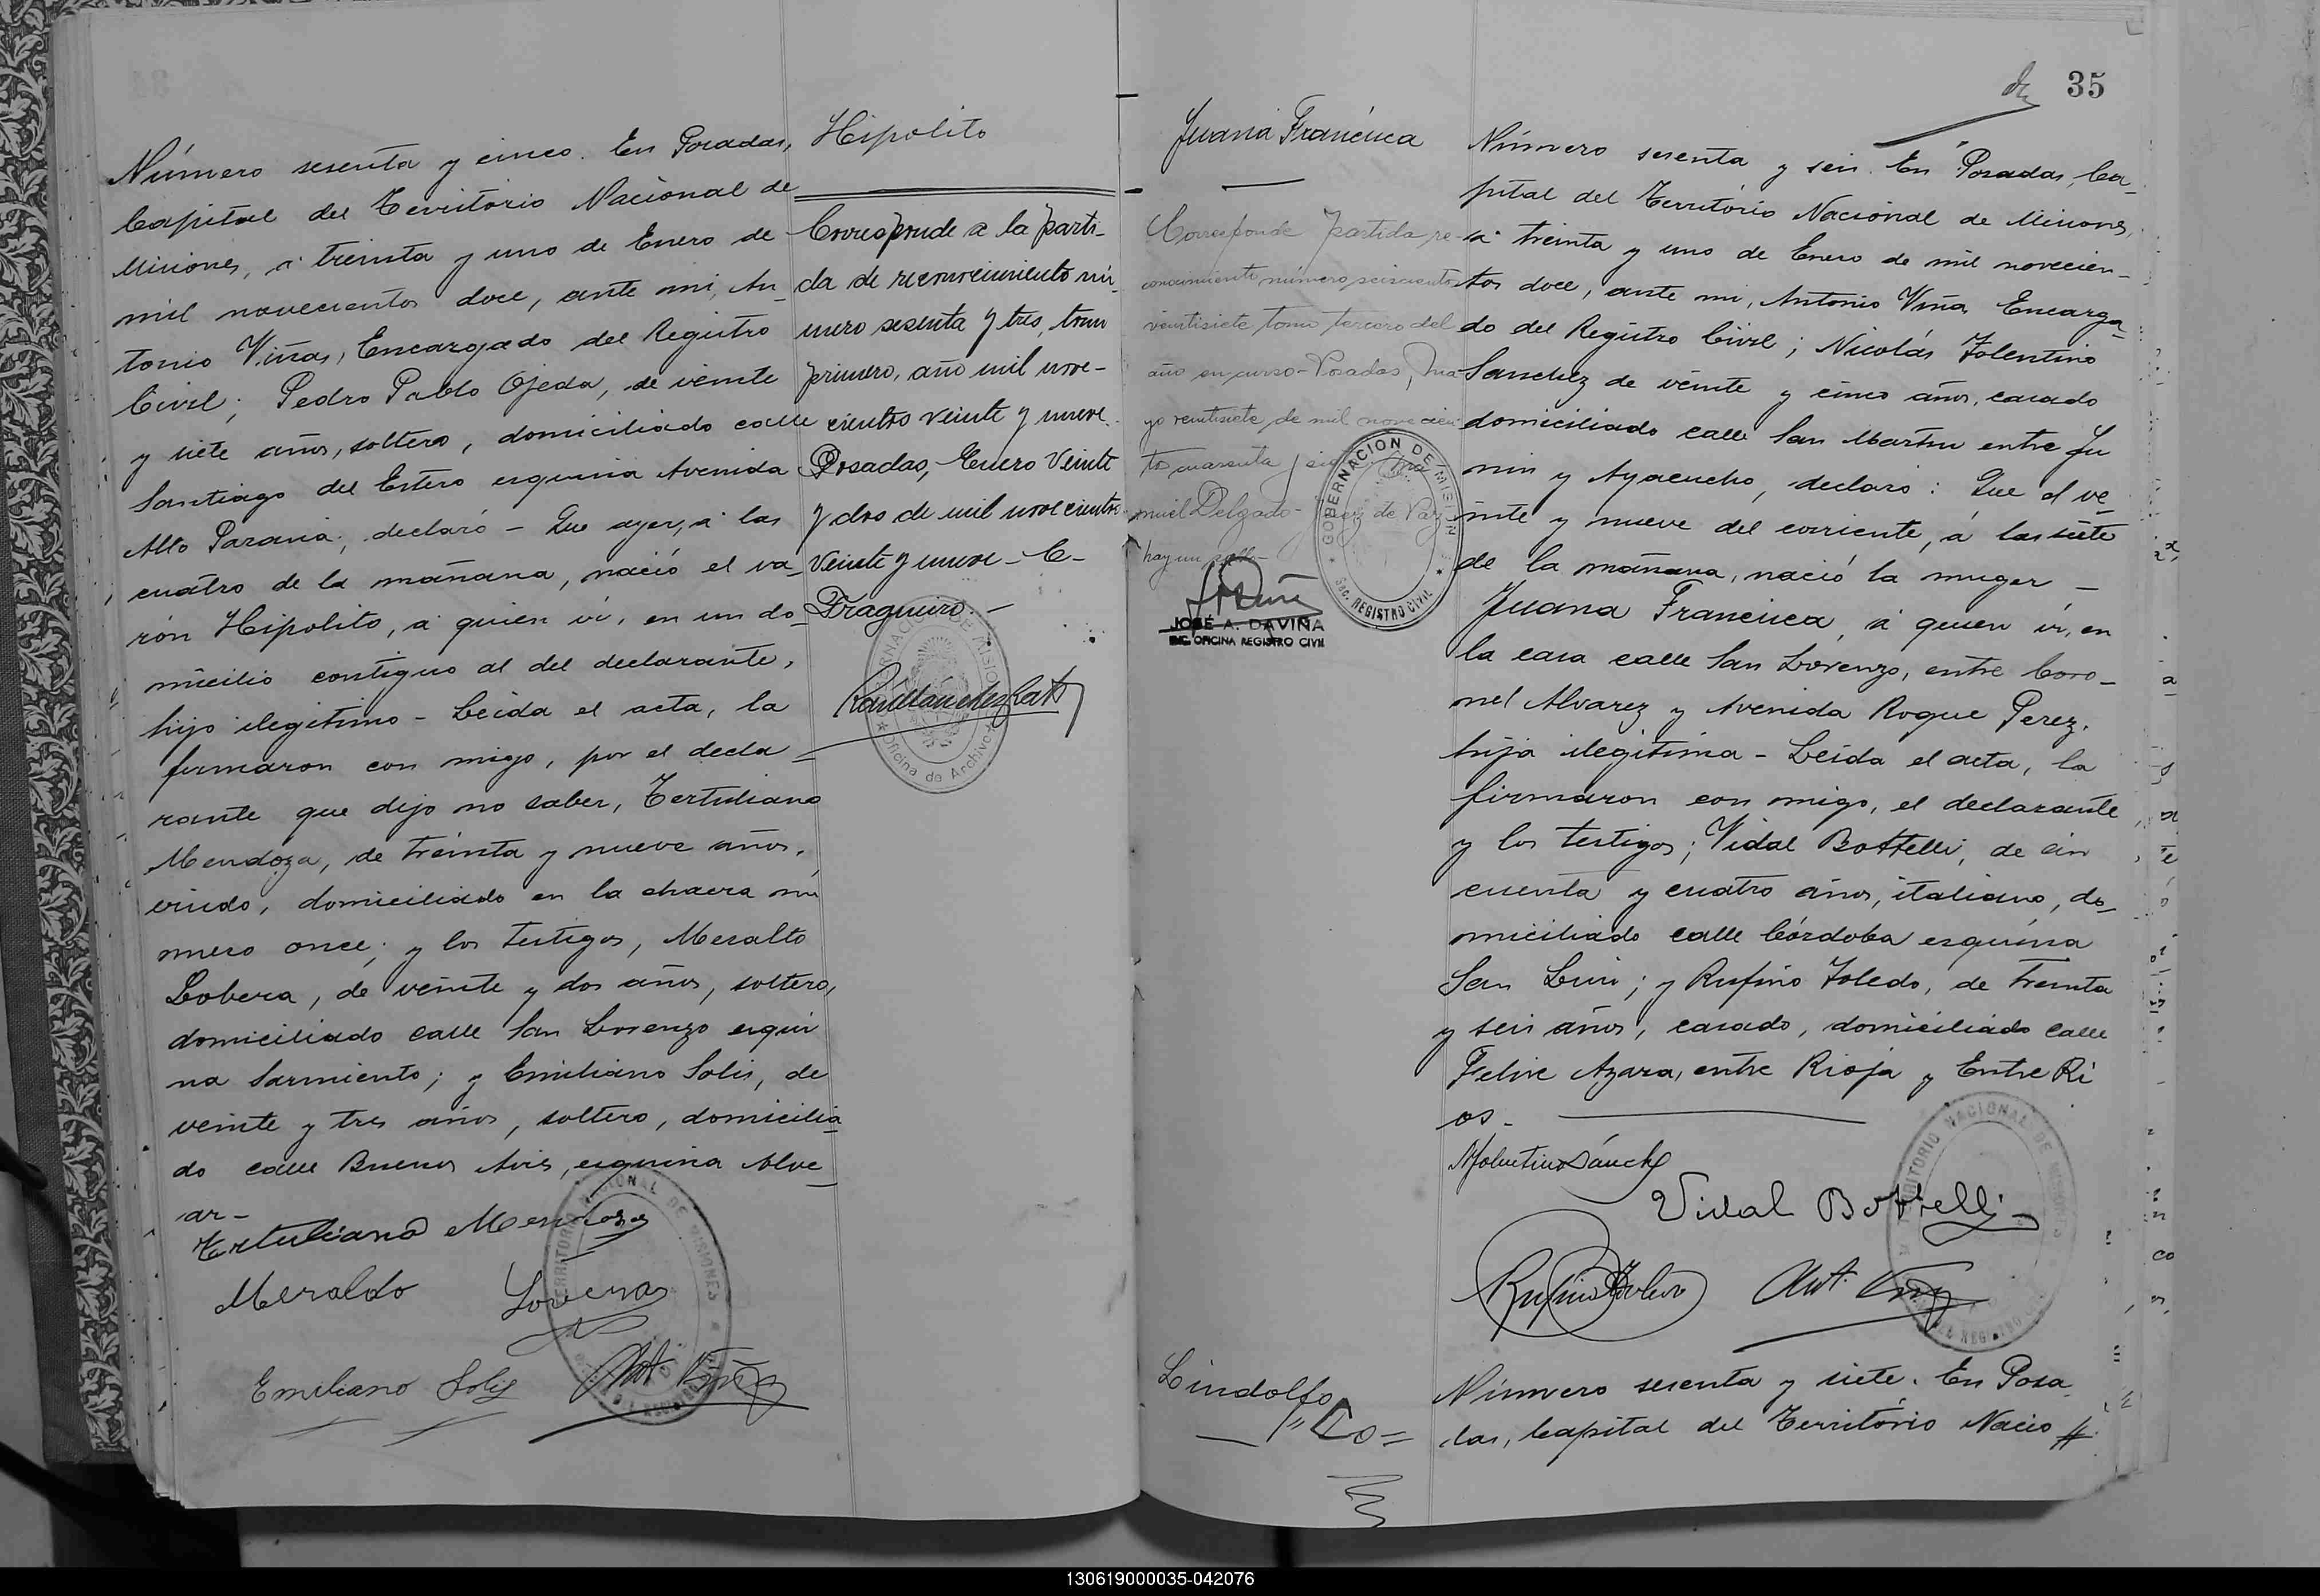 Número sesenta y cinco. En Posadas,
Capital del Territorio Nacional de
Misiones, á treinta y uno de Enero de
mil novecientos doce, ante mi, An_
tonio Viñas, Encargado del Registro
Civil; Pedro Pablo Ojeda, de veinte
y siete años, soltero, domiciliado calle
Santiago del Estero esquina Avenida
Alto Paraná; declaró - Que ayer, á las
cuatro de la mañana, nació el va_
rón Hipolito, á quien ví, en un do_
micilio contiguo al del declarante,
hijo ilegitimo - Leida el acta, la
firmaron con migo, por el decla_
rante que dijo no saber, Tertuliano
Mendoza, de treinta y nueve años,
viudo, domiciliado en la chacra nú
mero once; y los testigos, Meralto
Lobera, de veinte y dos años, soltero,
domiciliado calle San Lorenzo esqui
na Sarmiento; y Emiliano Solis, de
veinte y tres años, soltero, domicilia_
do calle Buenos Aires, esquina Alve_
ar-
Tertuliano Mendoza
Meraldo Lovera
Emiliano Solis Ant. Viñas
TERRITORIO NACIONAL DE MISIONES
Hipolito
Corresponde a la parti-
da de reconocimiento nú-
mero sesenta y tres, tomo
primero, año mil nove-
cientos veinte y nueve.
Posadas, Enero Veinte
y dos de mil novecientos
veinte y nueve - C-
Fragueiro.-
Oficina de Archivo
35
Juana Francisca
Corresponde partida re-
conocimiento número seiscientos
veintisiete tomo tercero del
año en curso - Posadas, Ma
yo veintisiete de mil novecien
tos cuarenta y siete Ma
nuel Delgado - Juez de Paz
hay un sello-
GOBERNACION DE MISIONES
SEC. REGISTRO CIVIL
JOSÉ A. DAVIÑA
ENC. OFICINA REGISTRO CIVIL
Número sesenta y seis. En Posadas, Ca_
pital del Territorio Nacional de Misiones,
á treinta y uno de Enero de mil novecien_
tos doce, ante mi, Antonio Viña, Encarga_
do del Registro Civil; Nicolás Tolentino
Sanchez de veinte y cinco años, casado
domiciliado calle San Martin entre Ju
nin y Ayacucho, declaró: Que el ve_
inte y nueve del corriente, á las siete
de la mañana, nació la muger -
Juana Francisca, á quien ví, en
la casa calle San Lorenzo, entre Coro_
nel Alvarez y Avenida Roque Perez,
hija ilegitima - Leida el acta, la
firmaron con migo, el declarante
y los testigos; Vidal Bottelli, de cin
cuenta y cuatro años, italiano, do_
miciliado calle Córdoba esquina
San Luis; y Rufino Toledo, de treinta
y seis años, casado, domiciliado calle
Felix Azara, entre Rioja y Entre Ri
os-
NTolentino Sánchez
Vidal Bottelli
Rufino Toledo Ant. Viñas
TERRITORIO NACIONAL DE MISIONES
Lindolfo
Número sesenta y siete. En Posa_
das, Capital del Territorio Nacio #
130619000035-042076